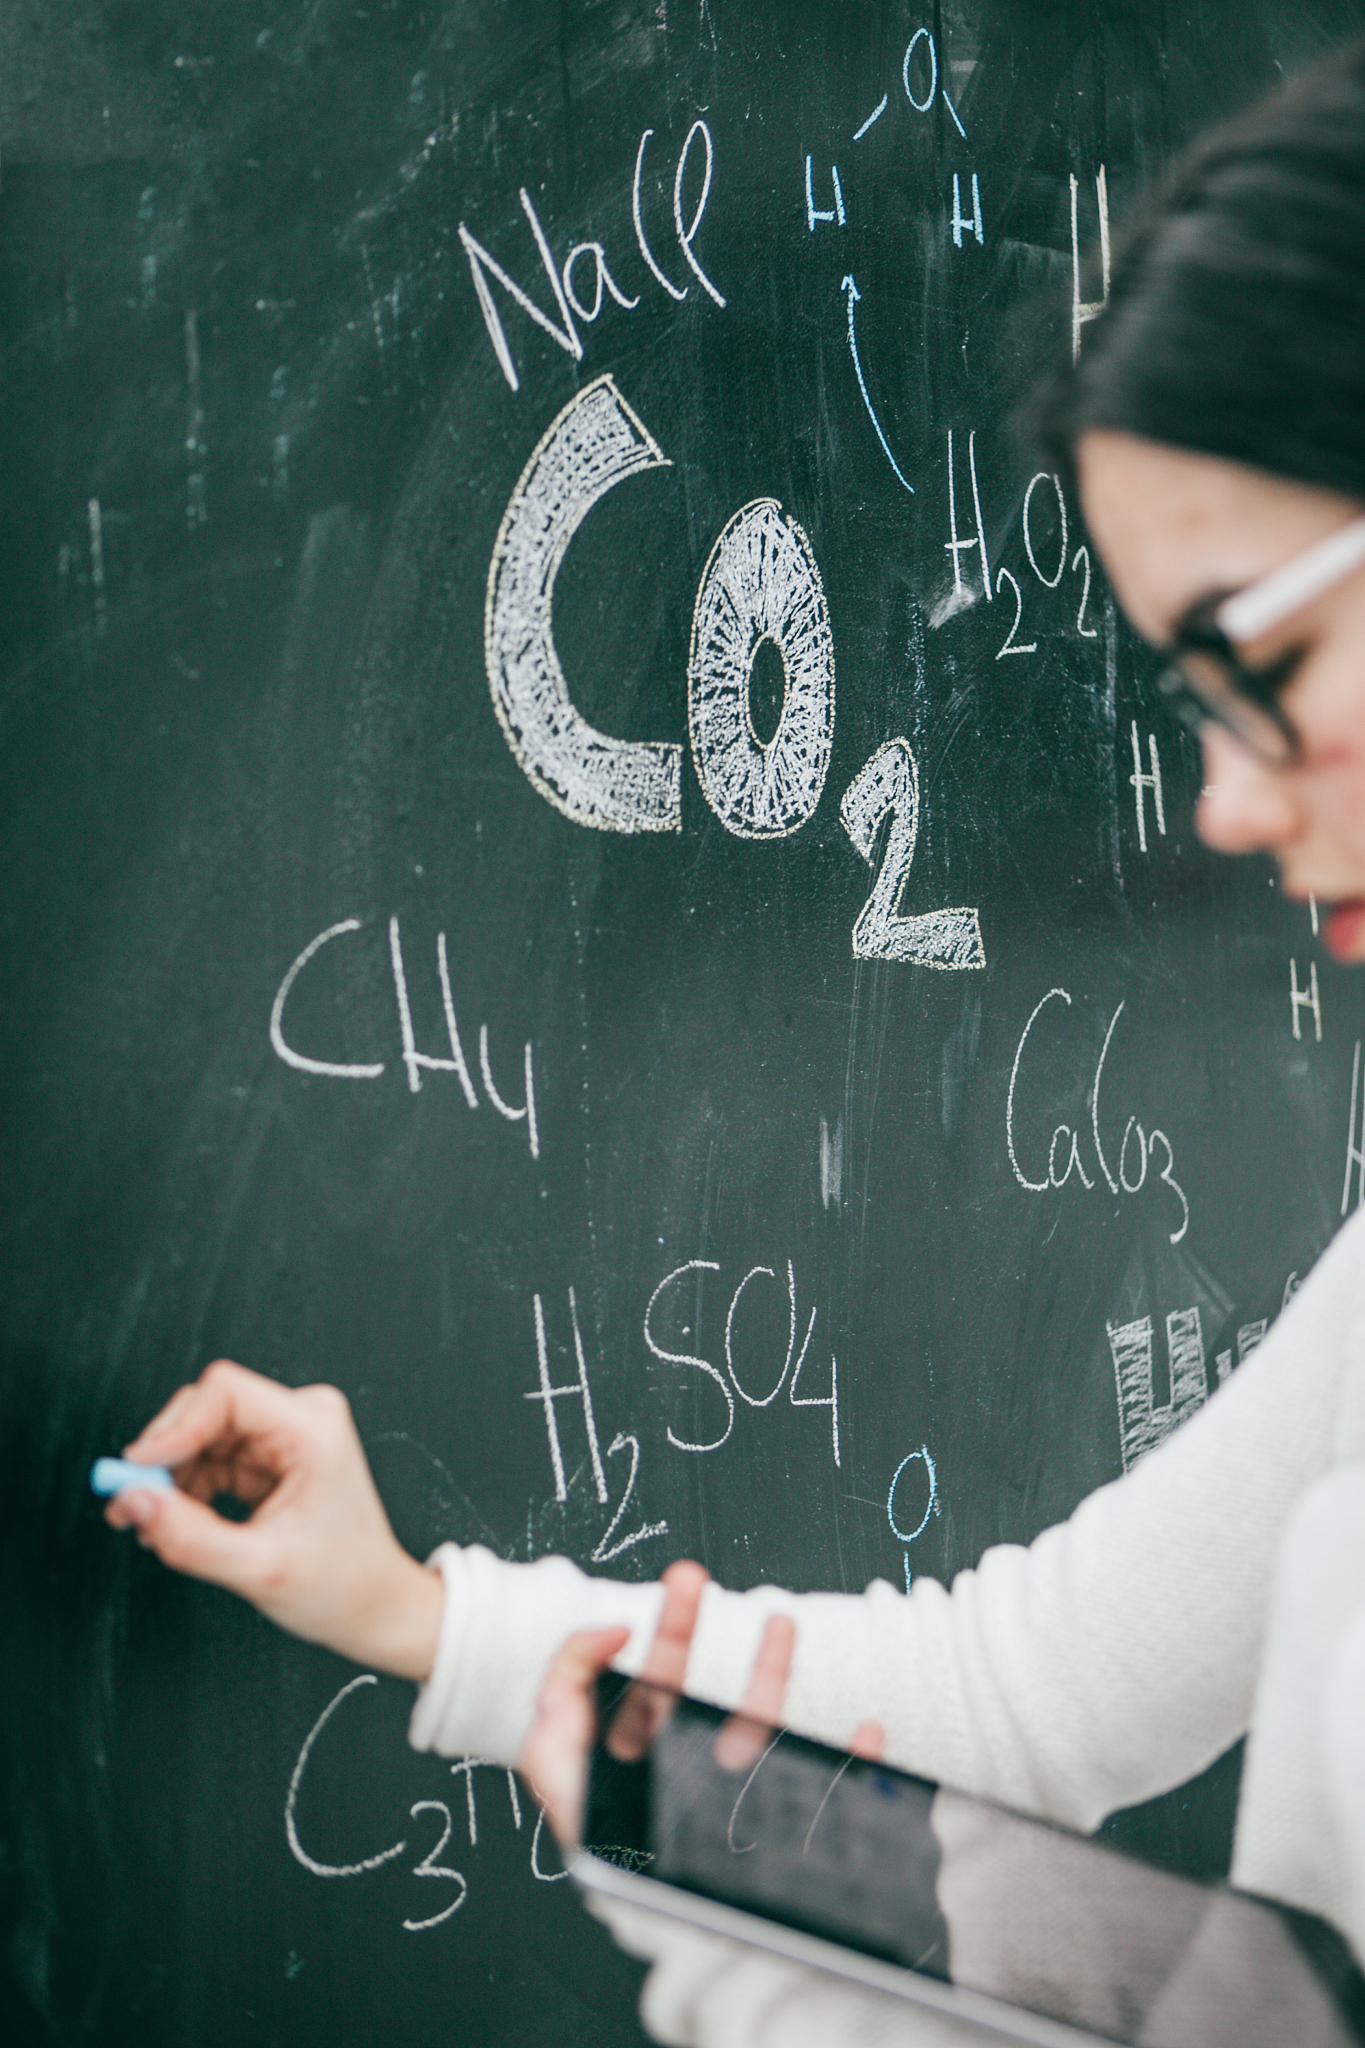 O
H H
NaCl
H₂O₂
CO₂
H
CH₄
H
CaCO₃
H₂SO₄
O
C₃H